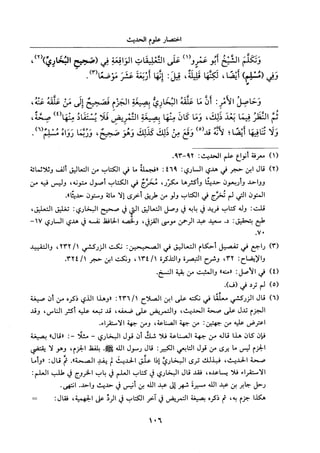 اختصار علوم الحديث
وَتَكَلَّمَ الشَّيْخُ أَبُو عَمْرٍو(١) عَلَى التَّعْلِيقَاتِ الوَاقِعَةِ فِي (صَحِيحِ البُخَارِيِّ)(٢)،
وَفِي (مُسْلِمٍ) أَيْضًا، لَكِنَّهَا قَلِيلَةٌ، قِيلَ: إِنَّهَا أَرْبَعَةَ عَشَرَ مَوْضِعًا(٣).
وَحَاصِلُ الأَمْرِ: أَنَّ مَا عَلَّقَهُ البُخَارِيُّ بِصِيغَةِ الجَزْمِ فَصَحِيحٌ إِلَى مَنْ عَلَّقَهُ عَنْهُ،
ثُمَّ النَّظَرُ فِيمَا بَعْدَ ذَلِكَ، وَمَا كَانَ مِنْهَا بِصِيغَةِ التَّمْرِيضِ فَلَا يُسْتَفَادُ مِنْهَا(٤) صِحَّةٌ،
وَلَا تُنَافِيهَا أَيْضًا؛ لأَنَّهُ قَدْ(٥) وَقَعَ مِنْ ذَلِكَ كَذَلِكَ وَهُوَ صَحِيحٌ، وَرُبَّمَا رَوَاهُ مُسْلِمٌ(٦).
(١) معرفة أنواع علم الحديث: ٩٢-٩٣.
(٢) قال ابن حجر في هدي الساري: ٤٦٩: «فجملة ما في الكتاب من التعاليق ألف وثلاثمائة
وواحد وأربعون حديثًا وأكثرها مكرر، مُخَرَّج في الكتاب أصول متونه، وليس فيه من
المتون التي لم تُخرَّج في الكتاب ولو من طريق أخرى إلا مائة وستون حديثًا».
قلت: وله كتاب فريد في بابه في وصل التعاليق التي في صحيح البخاري: تغليق التعليق،
طبع بتحقيق: د. سعيد عبد الرحمن موسى القزقي، ولخَّصه الحافظ نفسه في هدي الساري ١٧-
٧٠.
(٣) راجع في تفصيل أحكام التعاليق في الصحيحين: نكت الزركشي ٢٣٢/١، والتقييد
والإيضاح: ٣٢، وشرح التبصرة والتذكرة ١٣٤/١، ونكت ابن حجر ٣٢٤/١.
(٤) في الأصل: «منه» والمثبت من بقية النسخ.
(٥) لم ترد في (ف).
(٦) قال الزركشي معلِّقًا في نكته على ابن الصلاح ٢٣٦/١: «وهذا الذي ذكره من أن صيغة
الجزم تدل على صحة الحديث، والتمريض على ضعفه، قد تبعه عليه أكثر الناس، وقد
اعترض عليه من جهتين: من جهة الصناعة، ومن جهة الاستقراء.
فإن كان هذا قاله من جهة الصناعة فلا شكَّ أن قول البخاري - مثلًا -: «قال» بصيغة
الجزم ليس ما يرى من قول التابعي الكبير: قال رسول الله ﷺ، بلفظ الجزم، وهو لا يقتضي
صحة الحديث، فبذلك ترى البخاريَّ إذا علَّق الحديث لم يفد الصحة». ثم قال: «وأما
الاستقراء فلا يساعده، فقد قال البخاري في كتاب العلم في باب الخروج في طلب العلم:
رحل جابر بن عبد الله مسيرة شهر إلى عبد الله بن أنيس في حديث واحد. انتهى.
هكذا جزم به، ثم ذكره بصيغة التمريض في آخر الكتاب في الردِّ على الجهمية، فقال: =
١٠٦